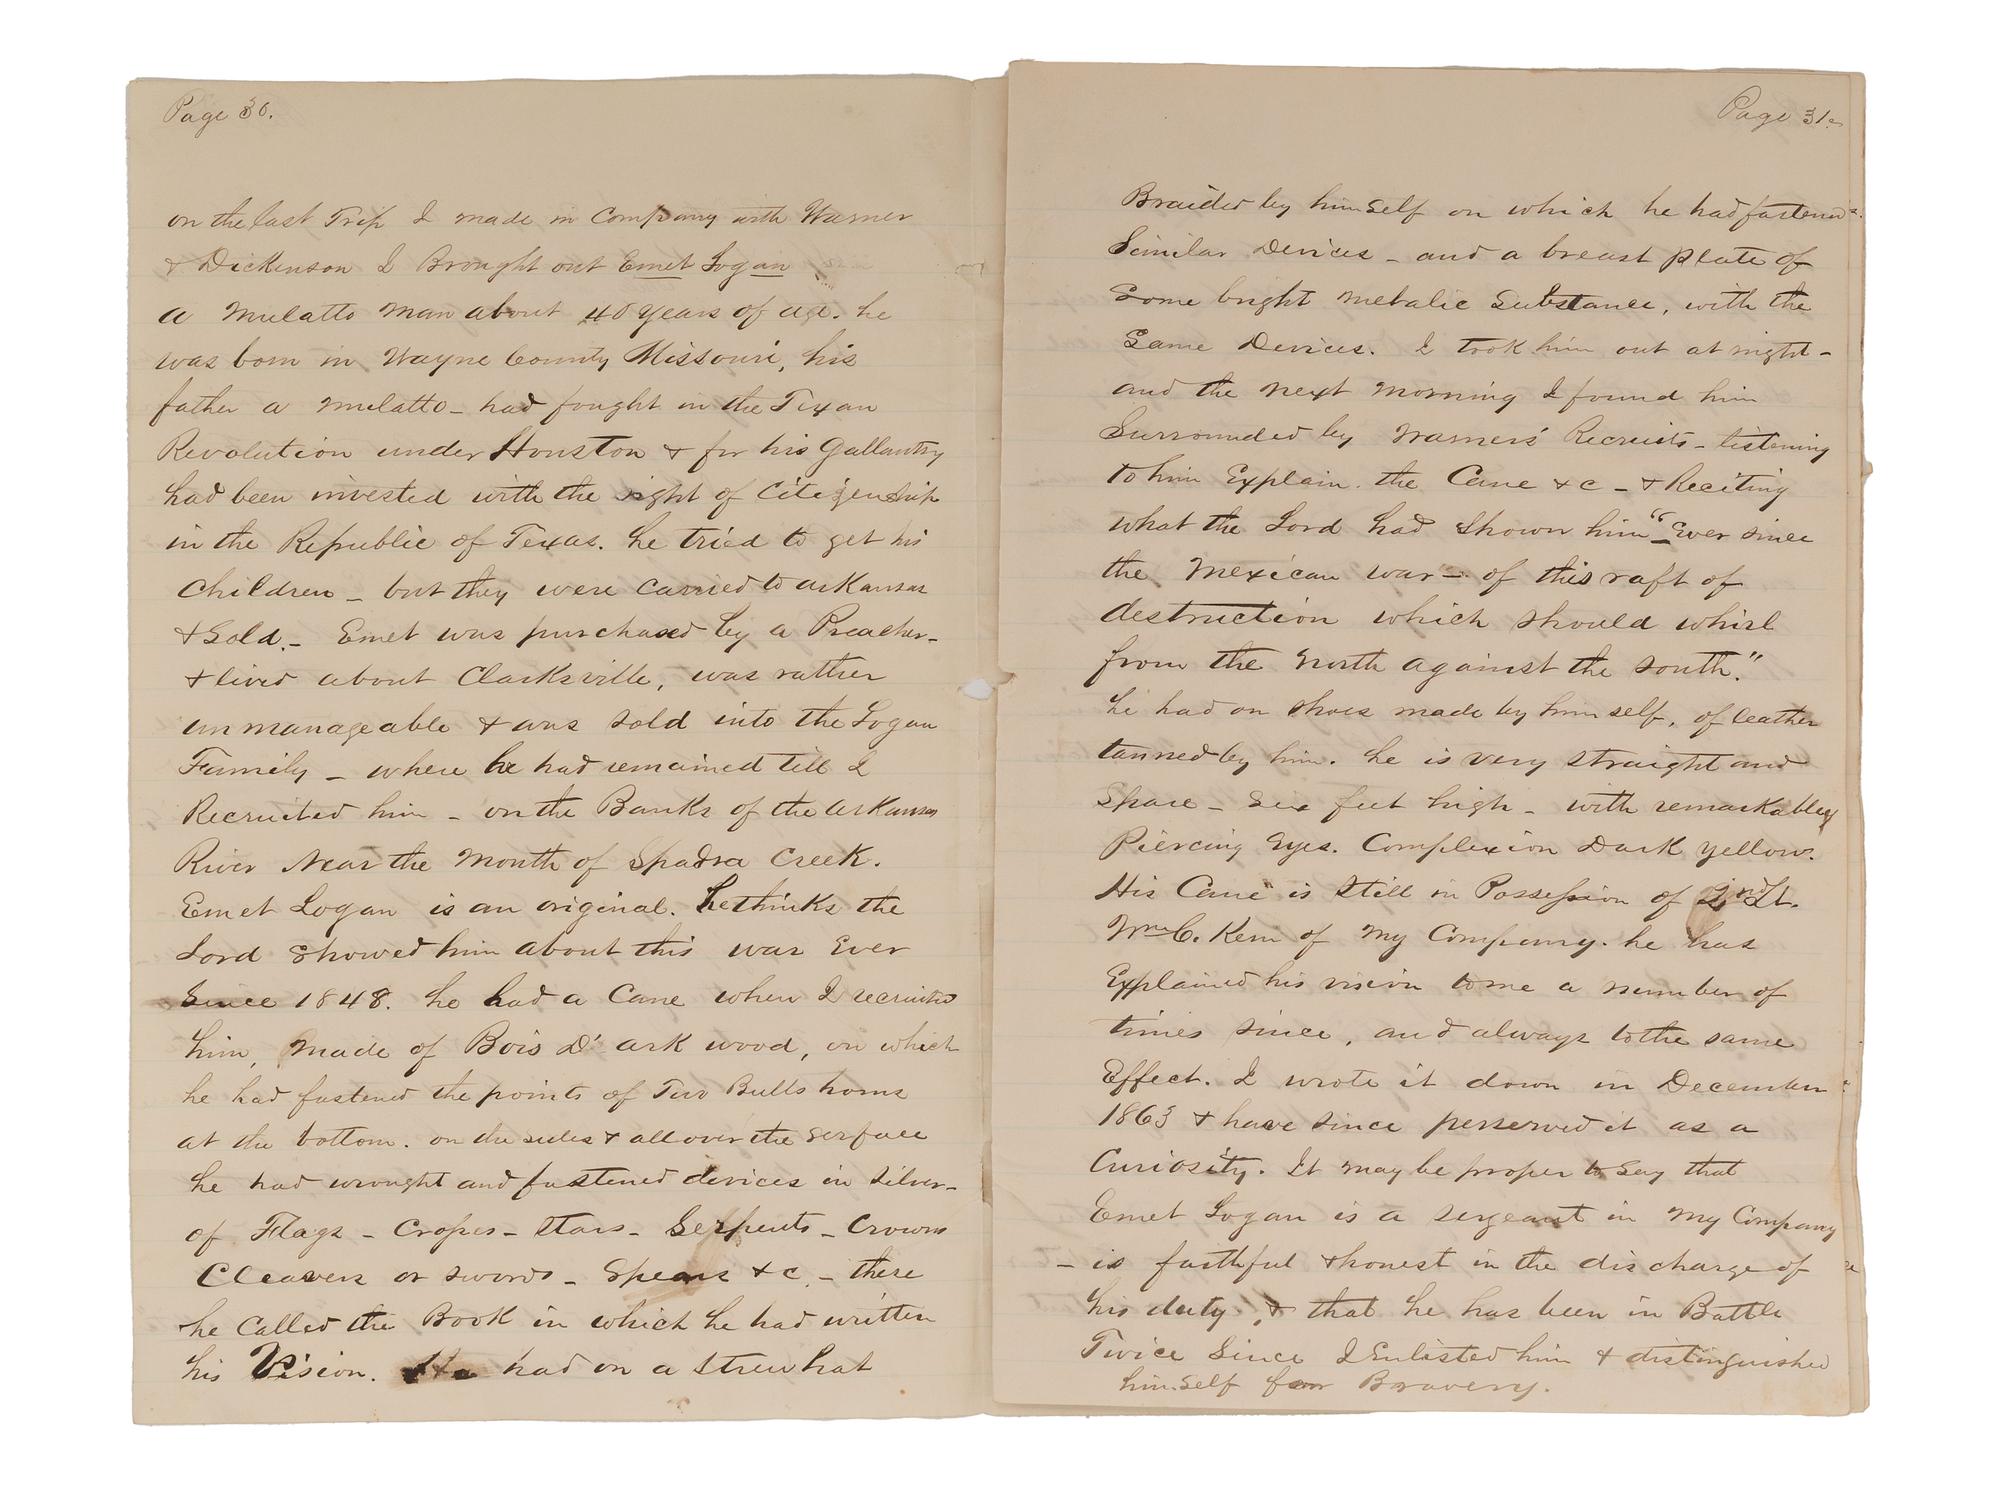 Page 30.
on the last Trip I made in Company with Warner
& Dickenson I Brought out Emet Logan
a Mulatto man about 40 years of age. he
was born in Wayne County Missouri, his
father a mulatto - had fought in the Texan
Revolution under Houston & for his Gallantry
had been invested with the right of Citizenship
in the Republic of Texas. he tried to get his
children - but they were carried to arkansas
& Sold. - Emet was purchased by a Preacher -
& lived about Clarksville, was rather
unmanageable & was sold into the Logan
Family - where he had remained till I
Recruited him - on the Banks of the arkansas
River Near the Mouth of Spadra Creek.
Emet Logan is an original. he thinks the
Lord Showed him about this war Ever
Since 1848. he had a Cane when I recruited
him, Made of Bois D' ark wood, on which
he had fastened the points of Two Bulls horns
at the bottom. on the sides & all over the serface
he had wrought and fastened devices in silver -
of Flags - Crosses - stars - Serpents - Crowns
Cleavers or swords - Spears &c. - these
he Called the Book in which he had written
his Vision. He had on a Straw hat
Page 31.
Braided by himself on which he had fastened
Similar Devices - and a breast plate of
Some bright metalic Substance, with the
Same Devices. I took him out at night -
and the next morning I found him
Surrounded by Warners' Recruits - listening
to him Explain the Cane &c - & Reciting
what the Lord had Shown him "Ever since
the Mexican war - of this raft of
destruction which should whirl
from the North against the South."
he had on shoes made by himself, of leather
tanned by him. he is very straight and
Spare - Six feet high - with remarkabley
Piercing Eyes. Complexion Dark yellow.
His Cane is still in Possession of 2nd Lt.
Wm C. Kern of My Company. he has
Explained his vision to me a number of
times since, and always to the same
Effect. I wrote it down in December
1863 & have since perserved it as a
Curiosity. It may be proper to Say that
Emet Logan is a sergeant in my Company
- is faithful & honest in the discharge of
his duty, & that he has been in Battle
Twice Since I Enlisted him & distinguished
himself for Bravery.